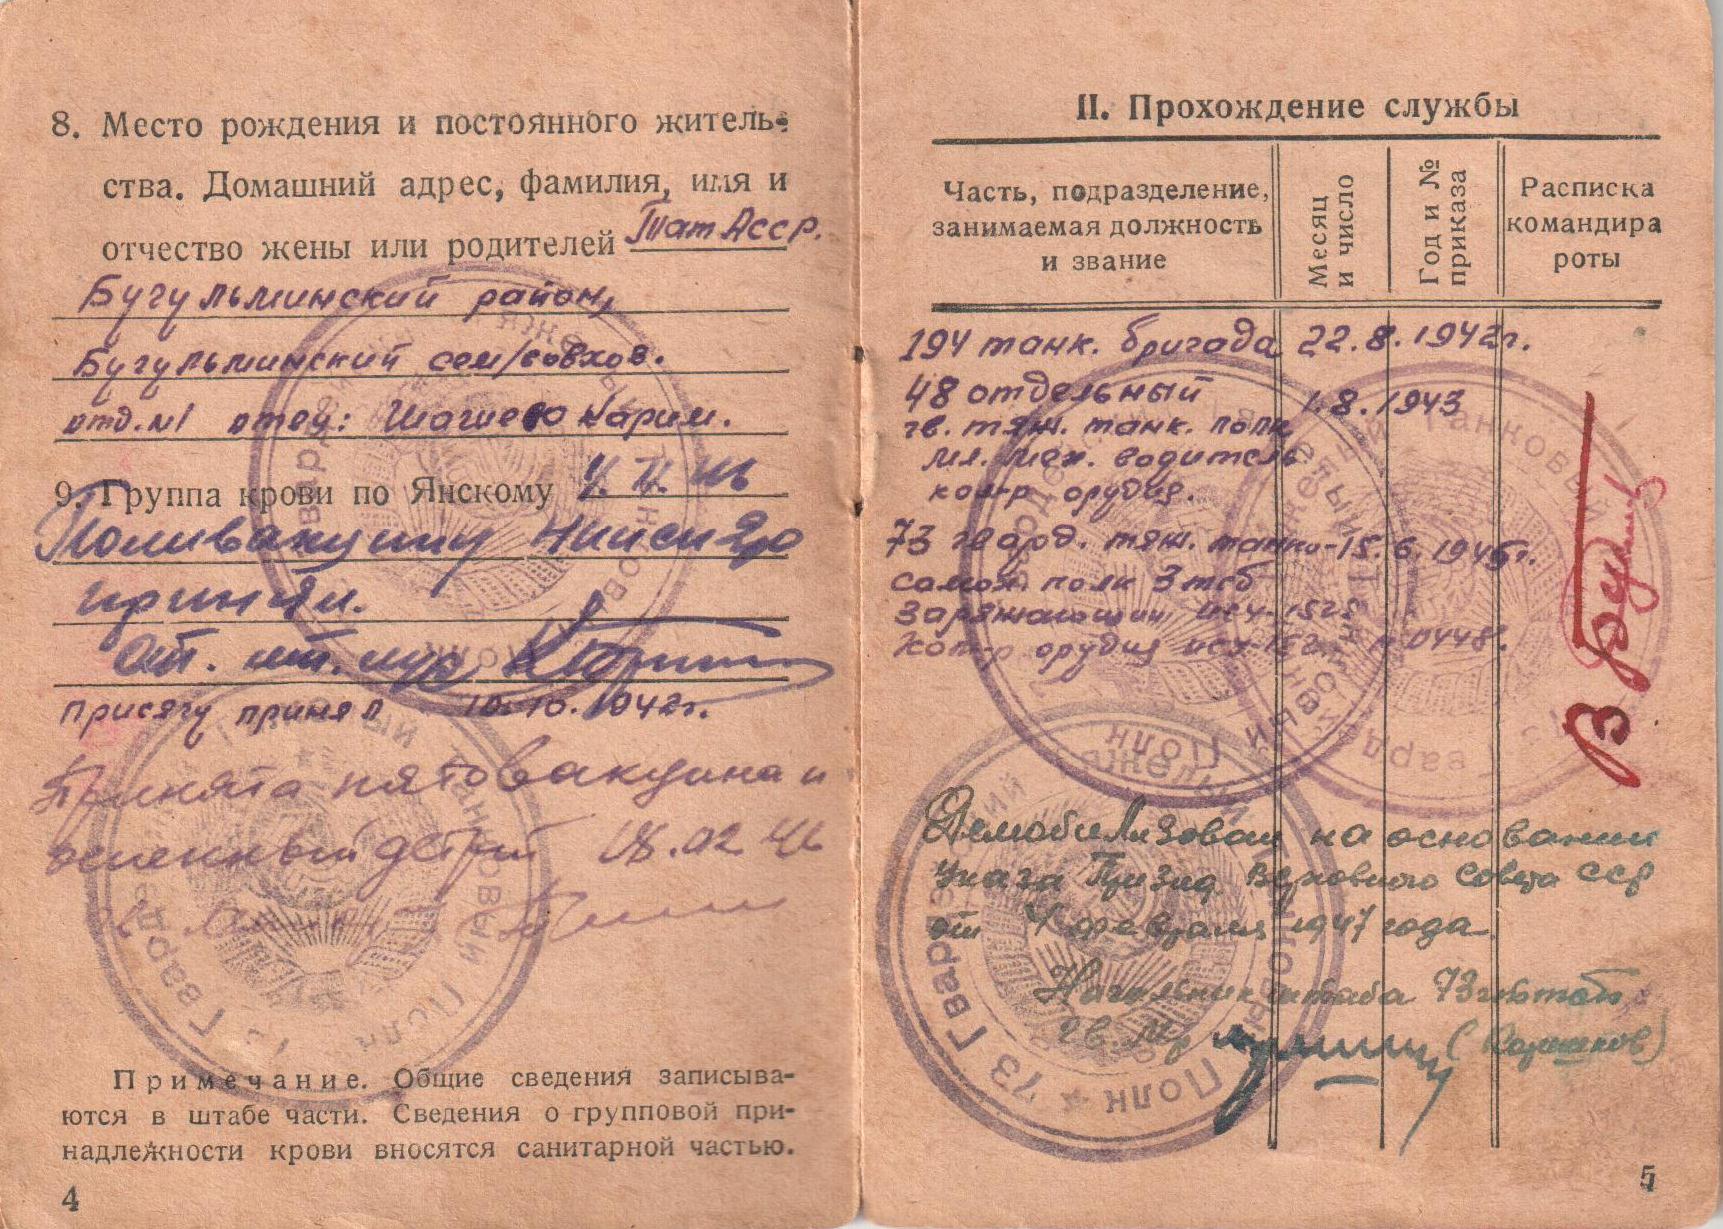 8. Место рождения и постоянного житель-
ства. Домашний адрес, фамилия, имя и
отчество жены или родителей ТатАССР.
Бугульминский район,
Бугульминский сем/совхоз.
отд. №1 отец: Шагиев Карим.
9. Группа крови по Янскому
Поливакцину
принял.
Присягу принял 10.10.1942г.
Принята пятовакцина и
18.02.46
Примечание. Общие сведения записыва-
ются в штабе части. Сведения о групповой при-
надлежности крови вносятся санитарной частью.
4
II. Прохождение службы
Часть, подразделение, занимаемая должность и звание
Месяц и число
Год и № приказа
Расписка командира роты
194 танк. бригада 22.8.1942г.
48 отдельный 1.8.1943
гв. тяж. танк. полк
мл. мех. водитель
ком-р орудия.
73 гвард. тяж. танко- 15.6.1945г.
самох. полк 3 тб
Заряжающий ису-152
Ком-р орудия ису-152
Демобилизован на основании
Указа Презид. Верховного Совета ССР
от 4 февраля 1947 года.
Начальник штаба 73
гв. м-р
73 Гвардейский Тяжелый Танковый Полк
5